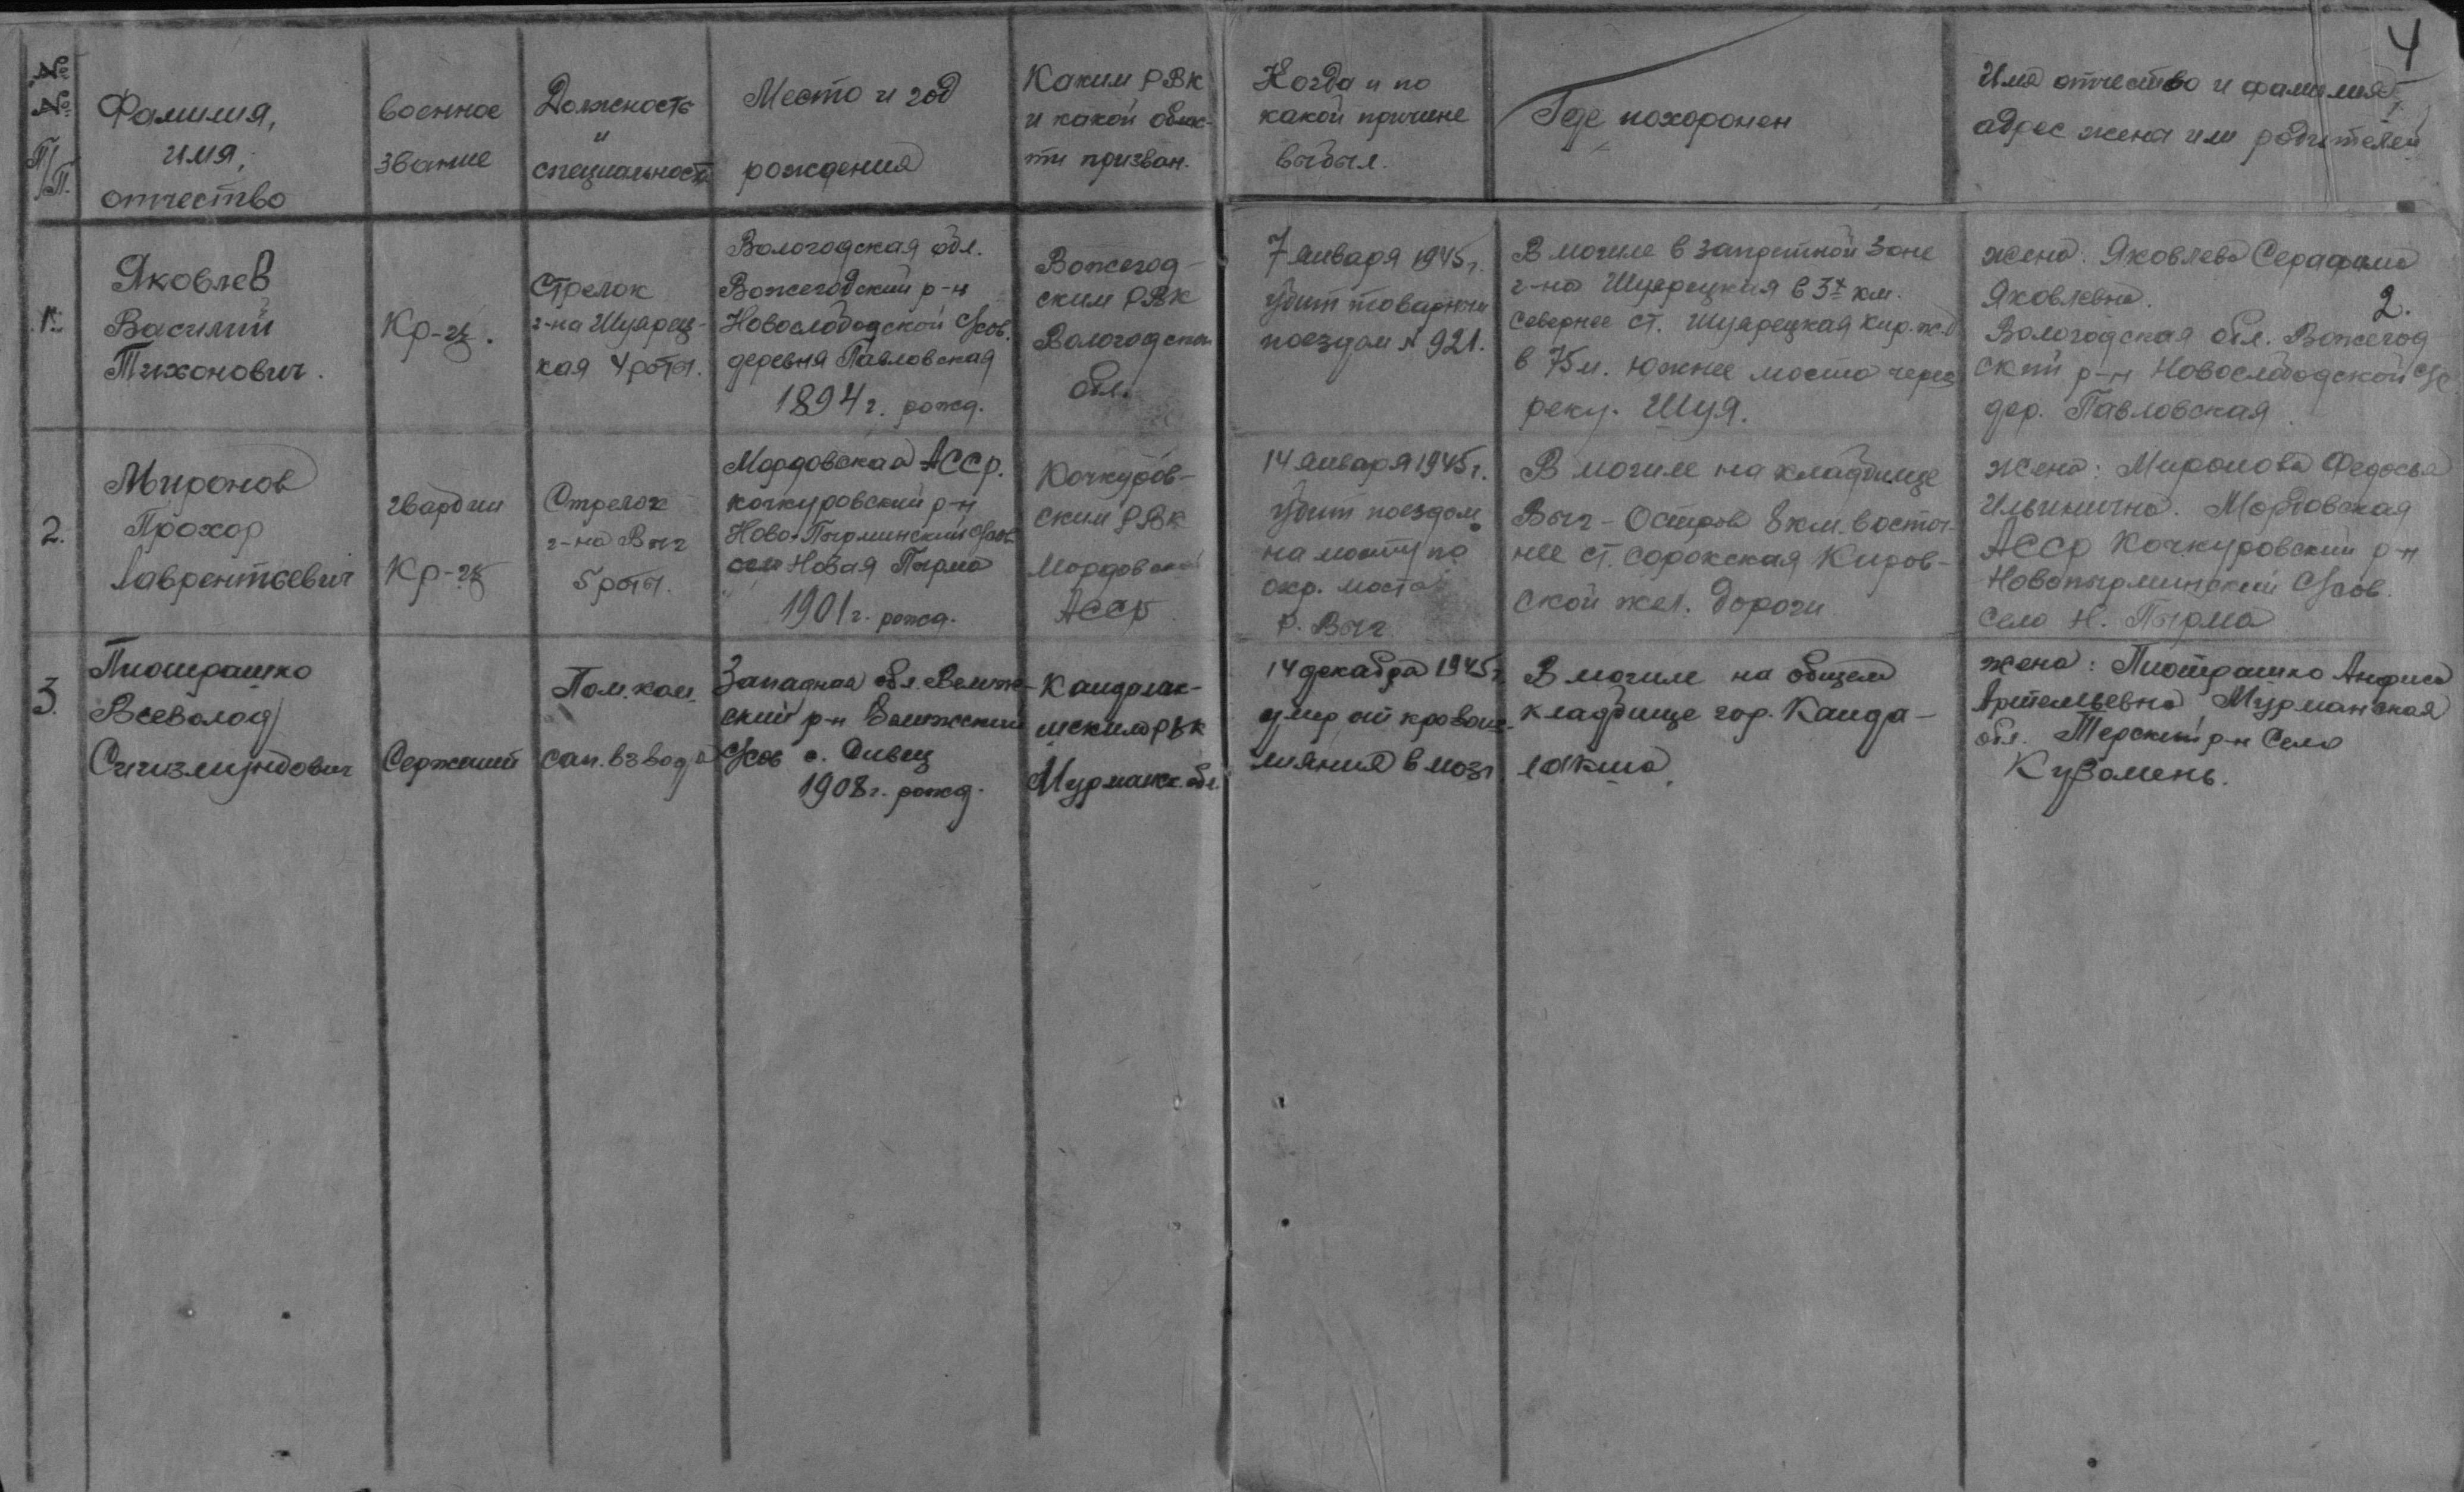 4
№ № п/п.
Фамилия,
имя,
отчество
военное
звание
Должность
и
специальность
Место и год
рождения
Каким РВК
и какой облас-
ти призван.
Когда и по
какой причине
выбыл.
Где похоронен
Имя отчество и фамилия,
адрес жена или родителей
1.
Яковлев
Василий
Тихонович.
Кр-ец.
Стрелок
г-на Шуярец-
кая 4 роты.
Вологодская обл.
Вожегодский р-н
Новослободской с/сов.
деревня Павловская
1894 г. рожд.
Вожегод-
ским РВК
Вологодской
обл.
7 января 1945 г.
убит товарным
поездом № 921.
В могиле в запретной зоне
г-на Шуярецкая в 3х км.
севернее ст. Шуярецкая Кир. ж.д
в 75 м. южнее моста через
реку. Шуя.
жена. Яковлева Серафима
Яковлевна.
2.
Вологодская обл. Вожегод-
ский р-н Новослободской с/с
дер. Павловская
2.
Миронов
Прохор
Лаврентьевич
гвардии
Кр-ец
Стрелок
г-на Выг
5 роты.
Мордовская АССР.
кочкуровский р-н
Ново-Пырминский с/сов
село Новая Пырма
1901 г. рожд.
Кочкуров-
ским РВК
Мордовской
АССР
14 января 1945 г.
убит поездом
на мосту по
окр. моста
р. Выг
В могиле на кладбище
Выг-Остров 8 км. восточ-
нее ст. Сорокская Киров-
ской жел. дороги
жена: Миронова Федосья
Ильинична. Мордовская
АССР Кочкуровский р-н
Новопырминский с/сов.
село Н. Пырма
3.
Пиотрашко
Всеволод
Сигизмундович
Сержант
Пом. ком.
сан. взвода
Западная обл. Велиж-
ский р-н Велижский
с/сов с. Сивец
1908 г. рожд.
Кандалак-
шским РВК
Мурманск. обл.
14 декабря 1945 г.
умер от кровоиз-
лияния в мозг.
В могиле на общем
кладбище гор. Канда-
лакша.
жена: Пиотрашко Анфиса
Артемьевна Мурманская
обл. Терский р-н Село
Кузомень.